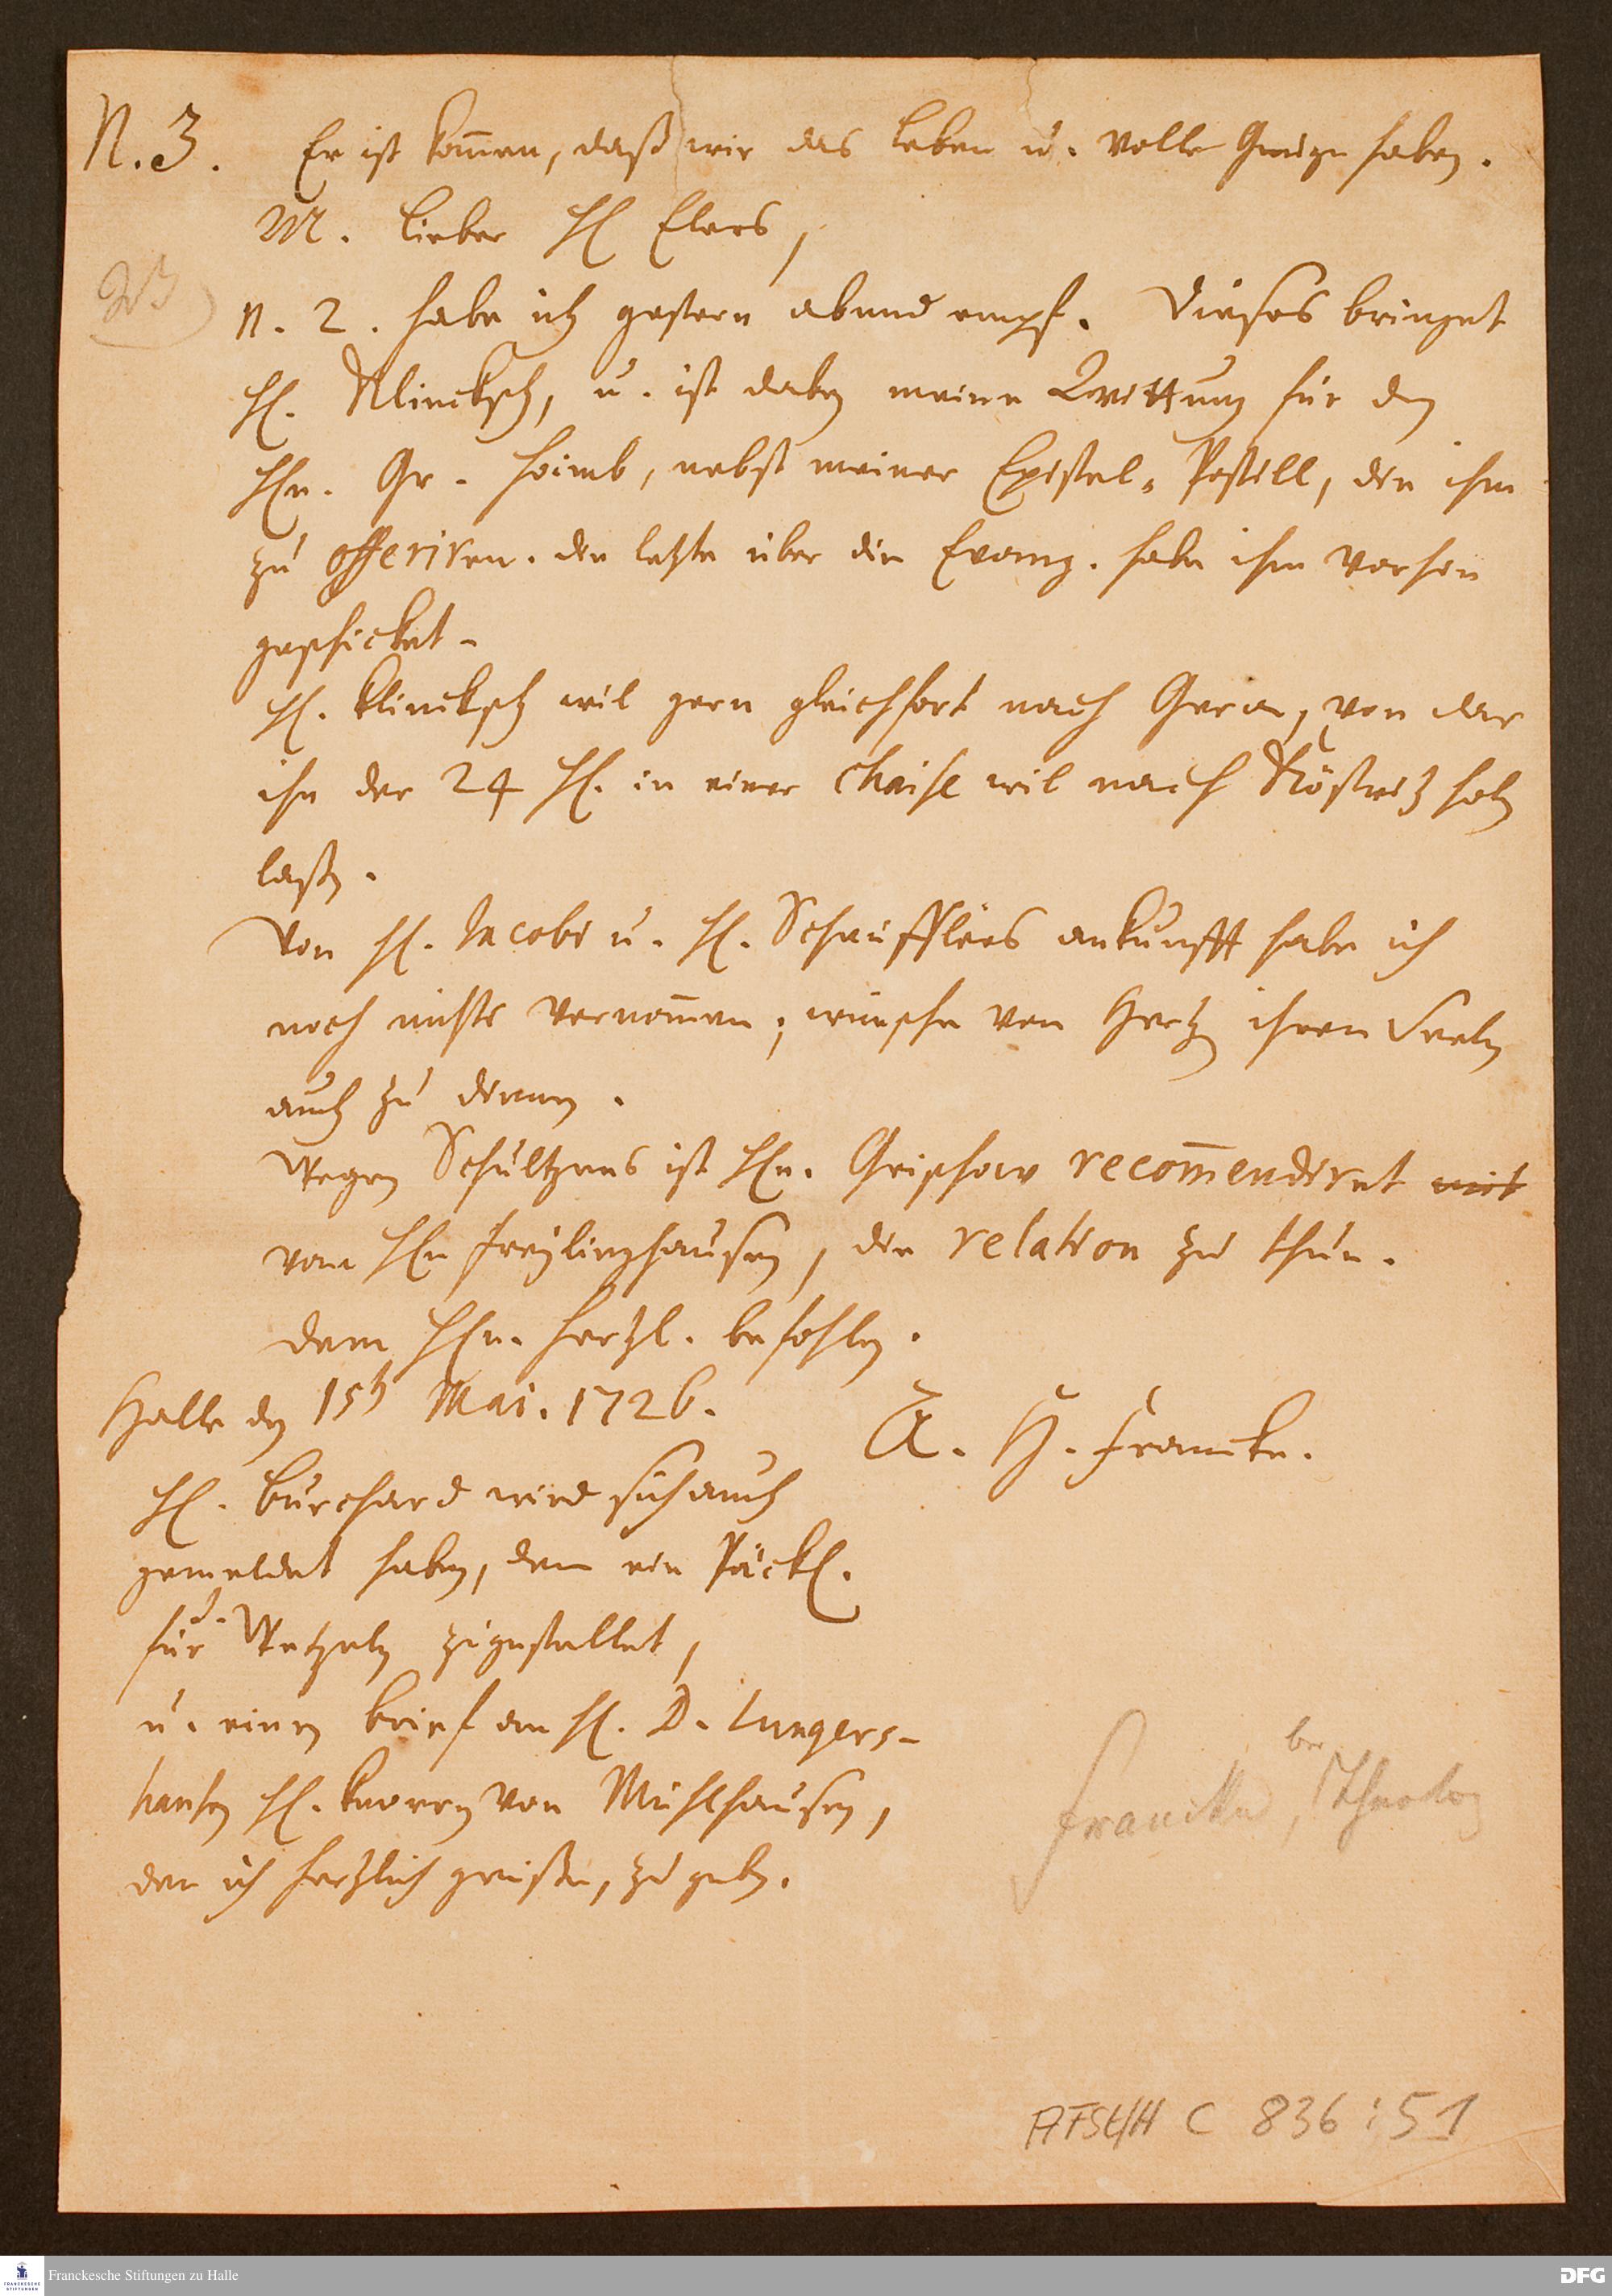 N. 3. Er ist kom̄en, daß wir das Leben u. volle Gnüge haben.
M. lieber H. Elers,
N. 2. habe ich gestern abend empf. Dieses bringet
H. Klincksch, u. ist dabey meine Quittung für den
Hn. Gr. Hoimb, nebst meiner Epistel-Postill, die ihm
zu offeriren. die letzte über die Evang. habe ihm vorhin
geschicket.
H. Klincksch wil gern gleichfort nach Gera, von dar
ihn der 24 H. in einer chaise wil nach Köstritz holen
laßen.
Von H. Jacobi u. H. Schäufflers ankunfft habe ich
noch nichts vernom̄en; wünsche von Hertzen ihren Seelen
auch zu dienen.
Wegen Schultzens ist Hn. Grischow recom̄endiret mit
von Hn Freylinghausen, die relation zu thun.
Dem Hn. hertzl. befohlen.
Halle den 15ten Mai. 1726.
A. H. Francke.
H. Burchard wird sich auch
gemeldet haben, dem ein Päckl.
für d. Wetzeln zugestellet,
u. einen brief an H. D. Jungers-
hansen H. Knorren von Mühlhausen,
den ich hertzlich grüße, zu geben.
Francke, ber. Theolog
AFSt/H C 836 : 51
Franckesche Stiftungen zu Halle
FRANCKESCHE
STIFTUNGEN
DFG